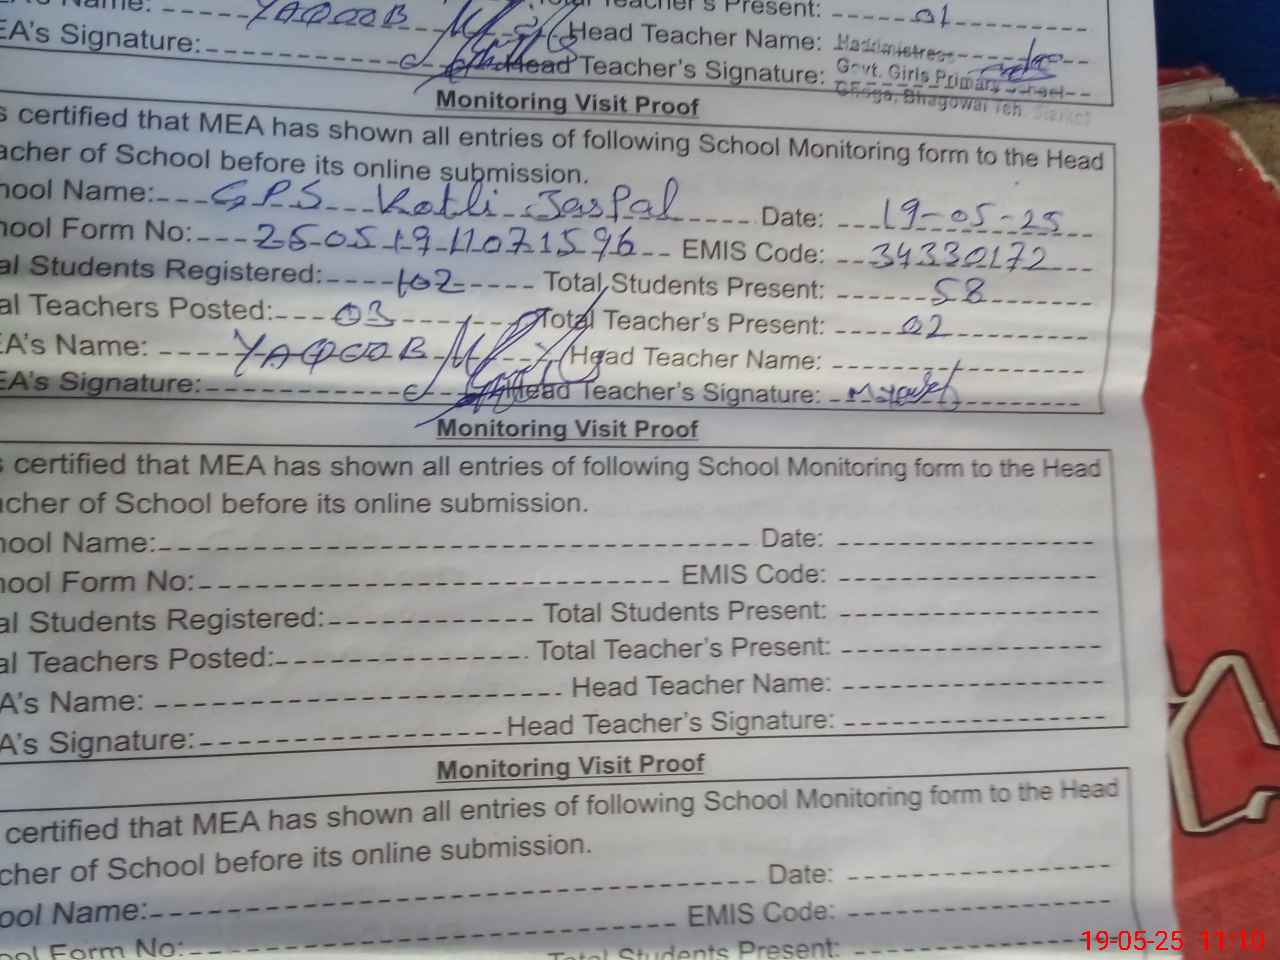 Name: YAQOOB Total Teacher's Present: 01
EA's Signature: Head Teacher Name: Headmistress
Head Teacher's Signature: Govt. Girls Primary School
Bhagowal Teh.
Monitoring Visit Proof
s certified that MEA has shown all entries of following School Monitoring form to the Head
acher of School before its online submission.
hool Name: GPS Kotli Jaspal Date: 19-05-25
hool Form No: 25051911071596 EMIS Code: 34330172
al Students Registered: 102 Total Students Present: 58
al Teachers Posted: 03 Total Teacher's Present: 02
EA's Name: YAQOOB Head Teacher Name:
EA's Signature: Head Teacher's Signature:
Monitoring Visit Proof
s certified that MEA has shown all entries of following School Monitoring form to the Head
acher of School before its online submission.
hool Name: Date:
hool Form No: EMIS Code:
al Students Registered: Total Students Present:
al Teachers Posted: Total Teacher's Present:
A's Name: Head Teacher Name:
A's Signature: Head Teacher's Signature:
Monitoring Visit Proof
certified that MEA has shown all entries of following School Monitoring form to the Head
cher of School before its online submission.
ool Name: Date:
ool Form No: EMIS Code:
Total Students Present:
19-05-25 11:10